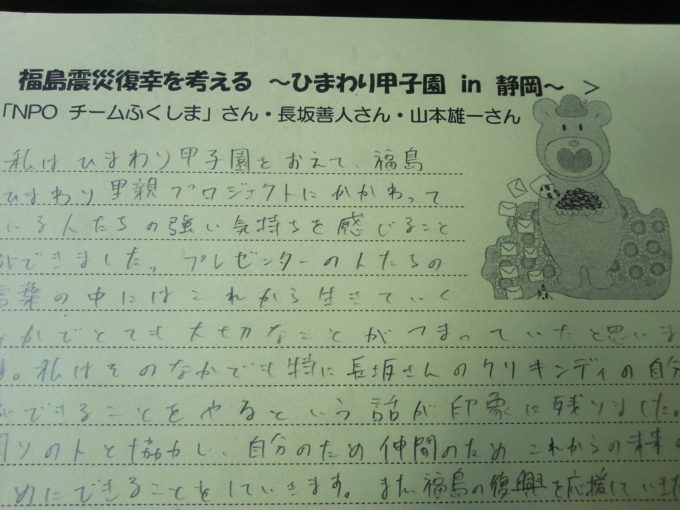 福島震災復幸を考える ～ひまわり甲子園 in 静岡～ ＞
「NPO チームふくしま」さん・長坂善人さん・山本雄一さん
私は ひまわり甲子園をおえて、福島
ひまわり里親プロジェクトにかかわって
いる人たちの強い気持ちを感じること
ができました。プレゼンターの人たちの
言葉の中にはこれから生きていく
なかでとても大切なことがつまっていたと思いま
す。私はそのなかでも特に長坂さんのクリキンディの自分
ができることをやるという話が印象に残りました。
周りの人と協力し、自分のため仲間のためこれからの未来の
ためにできることをしていきます。また福島の復興を応援していきた